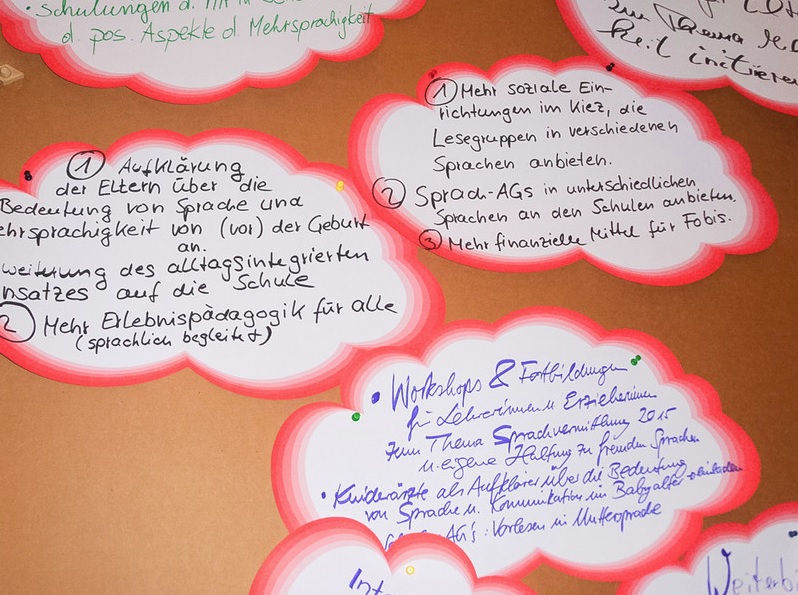 · Schulungen d.
d. pos. Aspekte d. Mehrsprachigkeit
zum Thema
keit initiieren
① Mehr soziale Ein-
richtungen im Kiez, die
Lesegruppen in verschiedenen
Sprachen anbieten.
② Sprach-AGs in unterschiedlichen
Sprachen an den Schulen anbieten.
③ Mehr finanzielle Mittel für Fobis.
① Aufklärung
der Eltern über die
Bedeutung von Sprache und
ehrsprachigkeit von (vor) der Geburt
an.
weiterung des alltagsintegrierten
nsatzes auf die Schule
② Mehr Erlebnispädagogik für alle
(sprachlich begleitet)
• Workshops & Fortbildungen
für Lehrerinnen u. Erzieherinnen
zum Thema Sprachvermittlung 2015
u. eigene Haltung zu fremden Sprachen
• Kinderärzte als Aufklärer über die Bedeutung
von Sprache u. Kommunikation im Babyalter
AG's: Vorlesen in Muttersprache
Int
Weiterbi